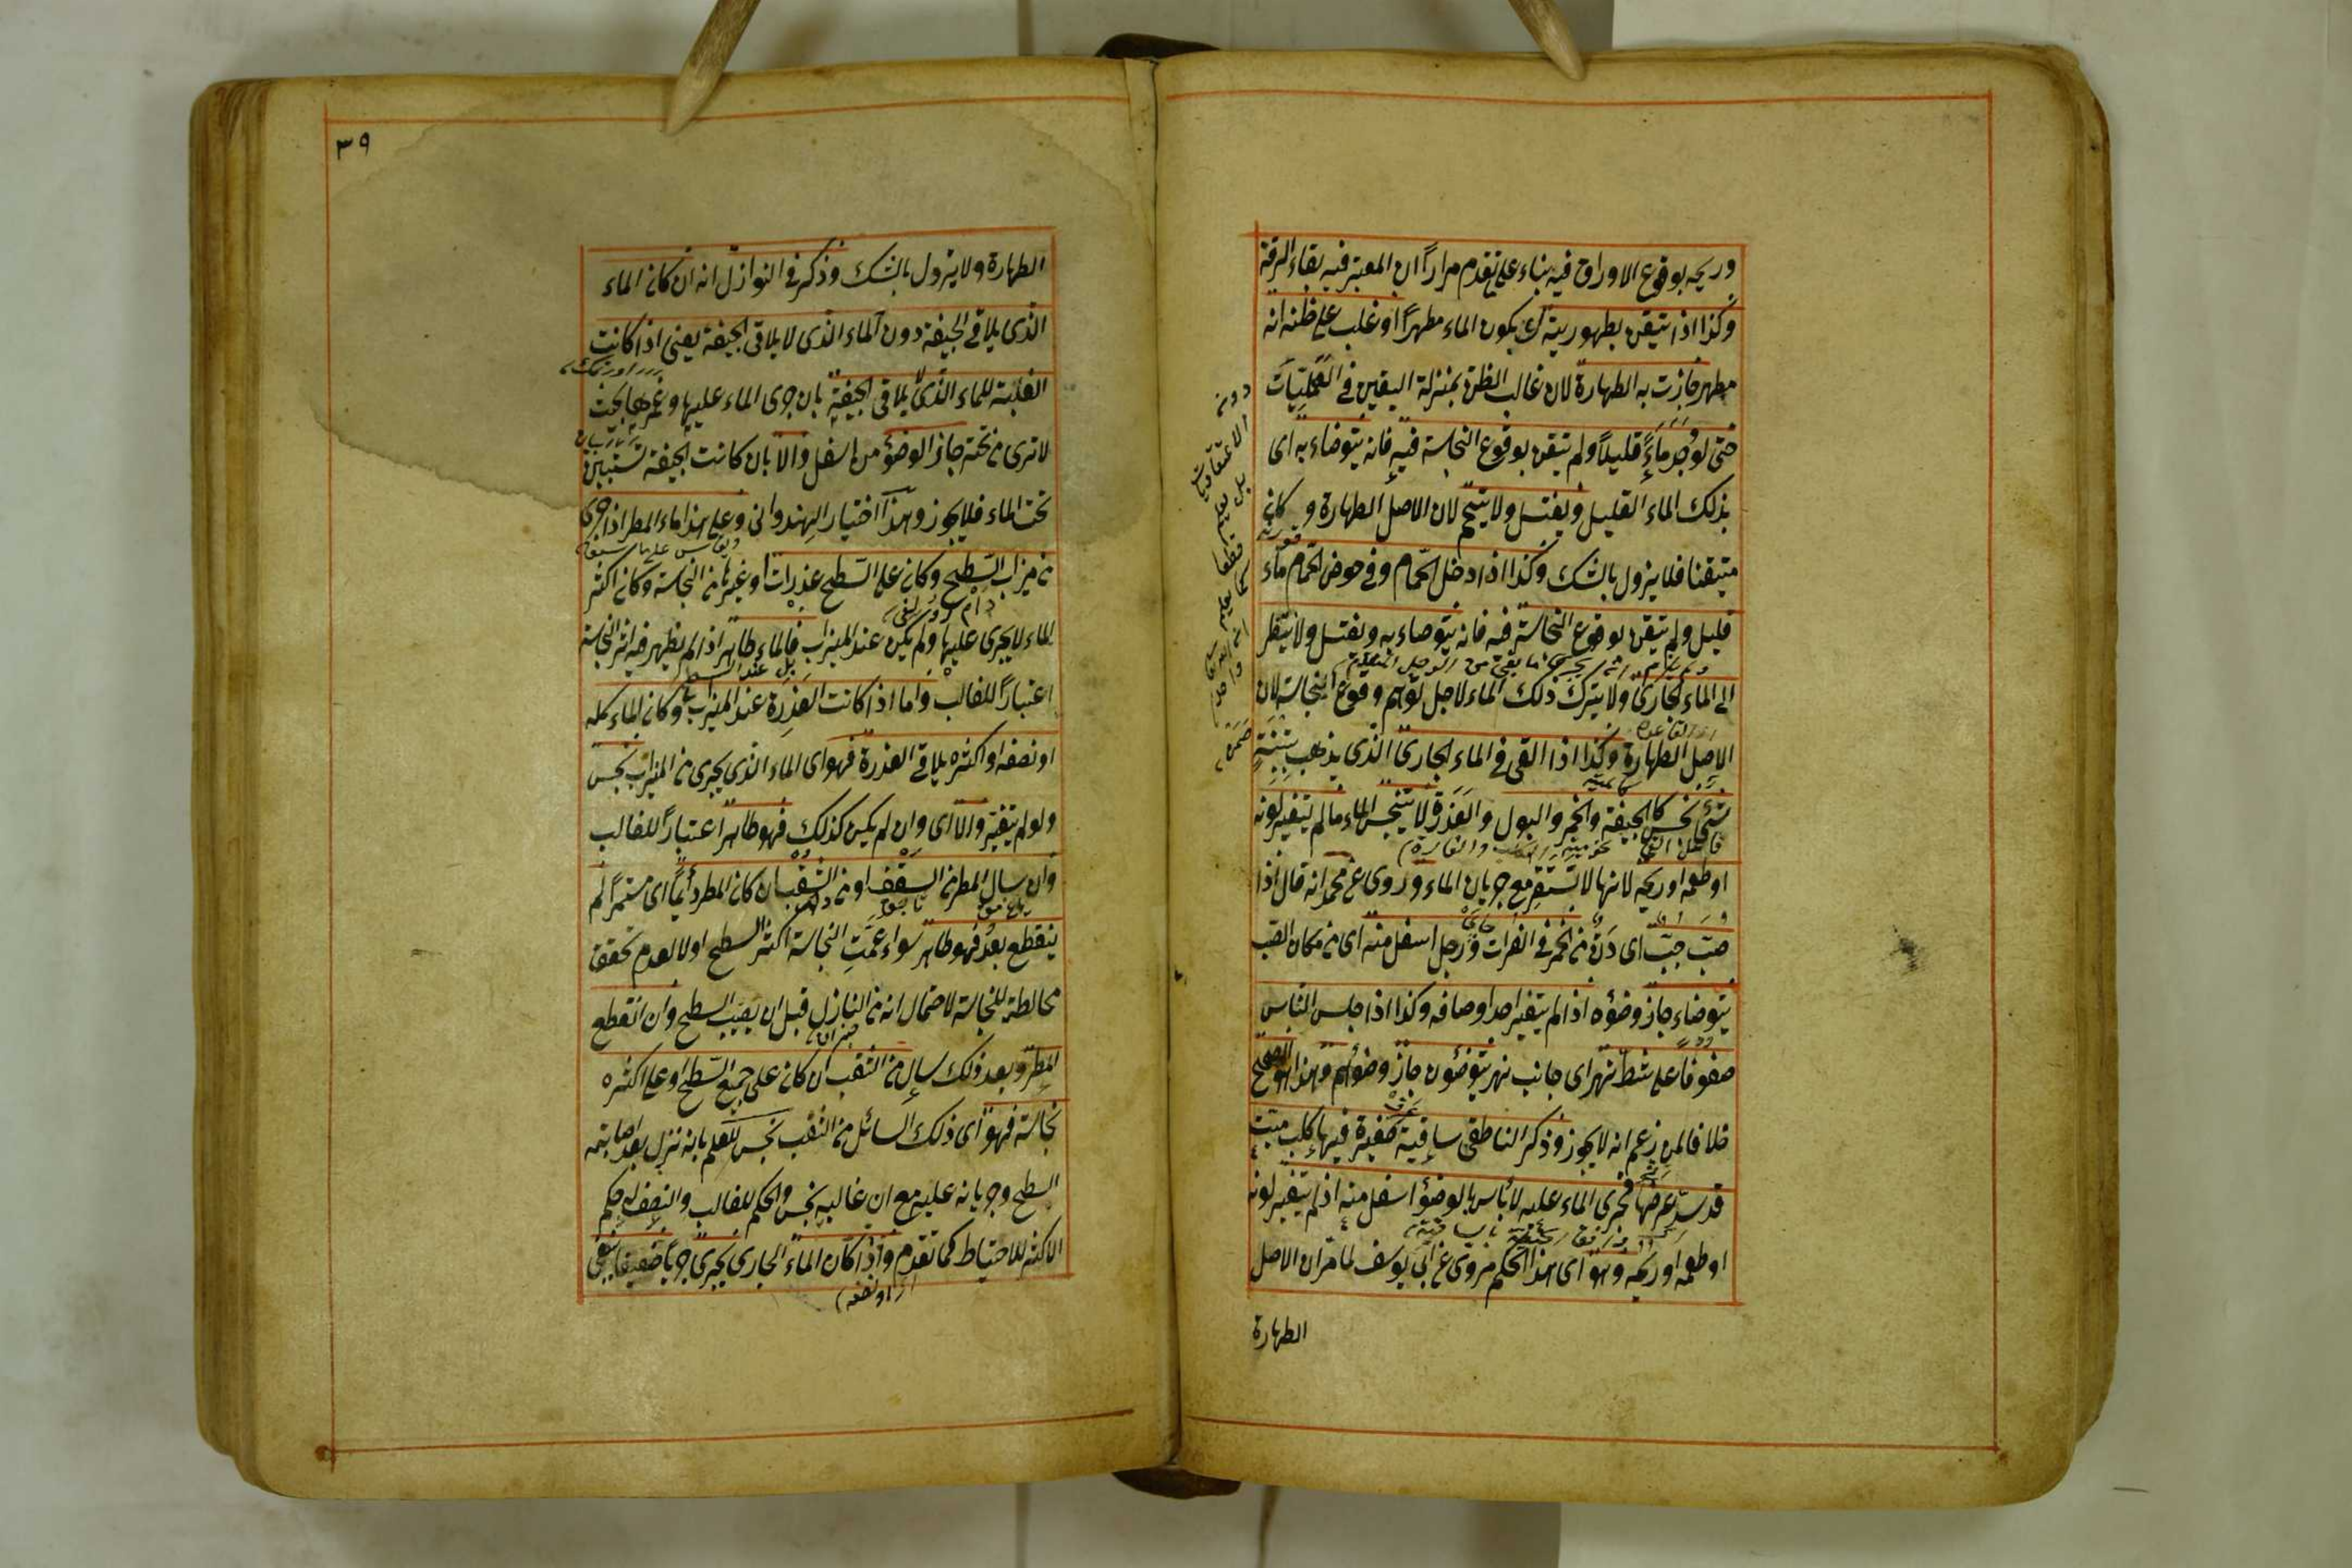 وريحه بوقوع الاوراق فيه بناء على تقدم مرارا ان المعتبر فيه بقاء الرقة
وكذا اذا تيقن بطهوريته اى بكون الماء مطهراً او غلب على ظنه انه
مطهر جازت به الطهارة لان غالب الظن بمنزلة اليقين فى العمليات
حتى لو وجد ماءً قليلاً ولم يتيقن بوقوع النجاسة فيه فانه يتوضاء به اى
بذلك الماء القليل ويغتسل ولا يتيمم لان الاصل الطهارة و كانه
متيقنا فلا يزول بالشك وكذا اذا دخل الحمام وفى حوض الحمام ماء
قليل ولم يتيقن بوقوع النجاسة فيه فانه يتوضاء به ويغتسل ولا ينتظر
الى الماء الجارى ولا يترك ذلك الماء لاجل توهم وقوع النجاسة لان
الاصل الطهارة وكذا اذا القى فى الماء الجارى الذى يذهب بتبنة
شئ نجس كالجيفة والخمر والبول والعذرة لا يتنجس الماء مالم يتغير لونه
او طعمه او ريحه لانها لا تستقر مع جريان الماء وروى عن محمد انه قال اذا
صب حب اى دن من الخمر فى الفرات ورجل اسفل منه اى من مكان الصب
يتوضاء جاز وضوؤه اذا لم يتغير احد اوصافه وكذا اذا جلس الناس
صفوفا على شط نهر اى جانب نهر يتوضؤن جاز وضوءهم وهذا هو الصحيح
خلافا لمن زعم انه لا يجوز وذكر الناطفى ساقية صغيرة فيها كلب ميت
قد سد عرضها فجرى الماء عليه لا بأس بالوضوء اسفل منه اذا لم يتغير لونه
او طعمه او ريحه وهو اى هذا الحكم مروى عن ابى يوسف لما مر ان الاصل
الطهارة
دون الاعتقاديات
٣٩
الطهارة ولا يزول بالشك وذكر فى النوازل انه ان كان الماء
الذى يلاقى الجيفة دون الماء الذى لا يلاقى الجيفة يعنى اذا كانت
الغلبة للماء الذى لا يلاقى الجيفة بان جرى الماء عليها وغمرها بحيث
لا ترى من تحته جاز الوضوء من اسفل والا بان كانت الجيفة تستبين
تحت الماء فلا يجوز وهذا اختيار الهندوانى وعلى هذا ماء المطر اذا جرى
من ميزاب السطح وكان على السطح عذرات او غيرها من النجاسة وكان اكثر
الماء لا يجرى عليها ولم يكن عند الميزاب فالماء طاهر اذا لم يظهر فيه اثر النجاسة
اعتباراً للغالب واما اذا كانت العذرة عند الميزاب وكان الماء كله
او نصفه او اكثره يلاقى العذرة فهو اى الماء الذى يجرى من الميزاب نجس
ولو لم يتغير والا اى وان لم يكن كذلك فهو طاهر اعتباراً للغالب
وان سال المطر من السقف او من الثقب ان كان المطر دائما اى مستمرا لم
ينقطع بعد فهو طاهر سواء عمت النجاسة اكثر السطح اولا لعدم تحقق
مخالطة للنجاسة لاحتمال انه من النازل قبل ان يصيب السطح وان انقطع
المطر وبعد ذلك سال من الثقب ان كان على جميع السطح او على اكثره
نجاسة فهو اى ذلك السائل من الثقب نجس للعلم بانه نزل بعد اصابته
السطح وجريانه عليه مع ان غالبه نجس والحكم للغالب والنصف له حكم
الاكثر للاحتياط كما تقدم واذا كان الماء الجارى يجرى جريا ضعيفا ينبغى